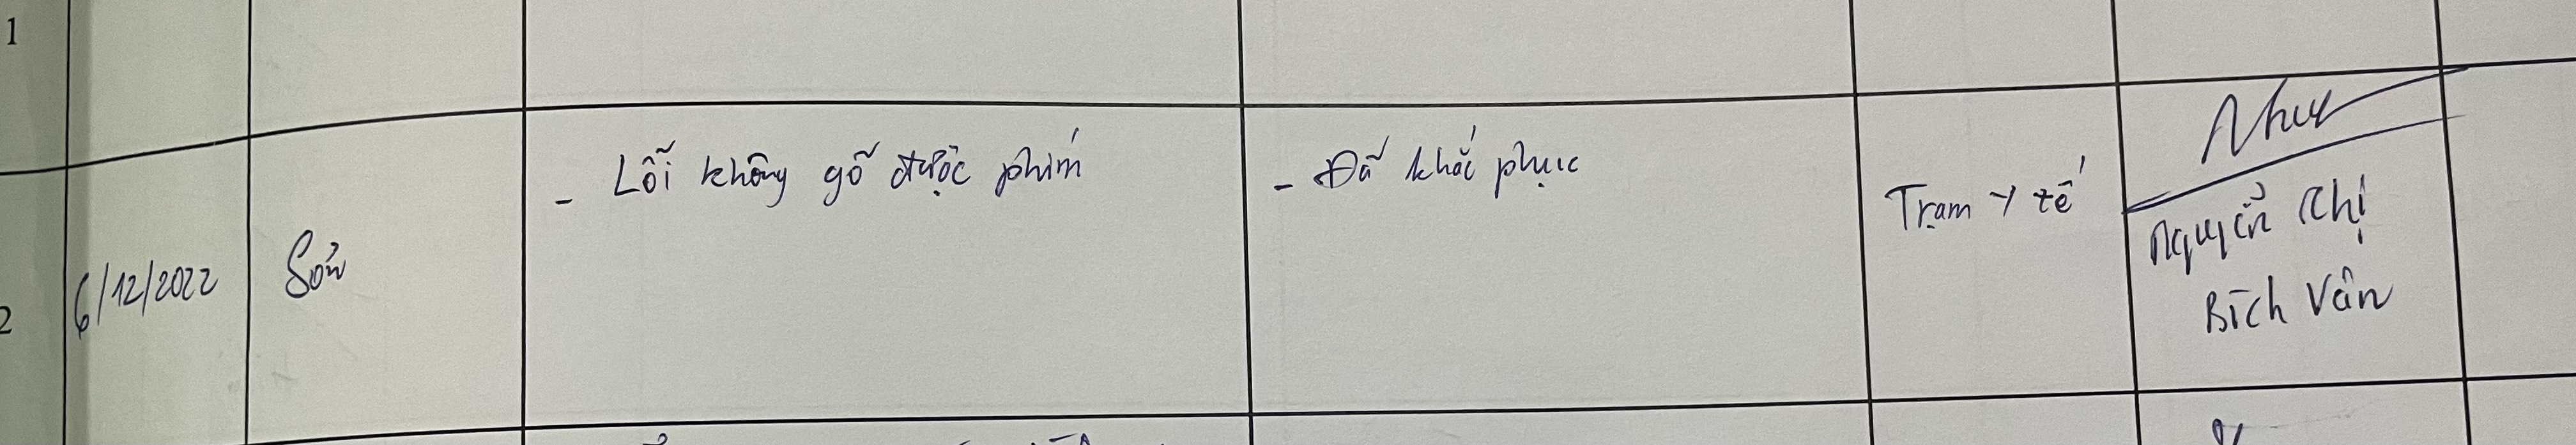 1
2
6/12/2022
Sơn
- Lỗi không gõ được phím
- Đã khắc phục
Trạm y tế
Nguyễn Thị
Bích Vân